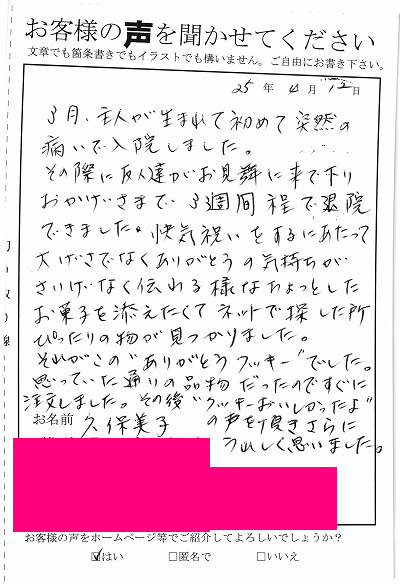 お客様の声を聞かせてください
文章でも箇条書きでもイラストでも構いません。ご自由にお書き下さい。
25年4月12日
3月、主人が生まれて初めて突然の
病いで入院しました。
その際に友人達がお見舞に来て下り
おかげさまで、3週間程で退院
できました。快気祝いをするにあたって
大げさでなくありがとうの気持ちが
さりげなく伝わる様なちょっとした
お菓子を添えたくてネットで探した所
ぴったりの物が見つかりました。
それがこの"ありがとうクッキー"でした。
思っていた通りの品物だったのですぐに
注文しました。その後"クッキーおいしかったよ"
の声を頂きさらに
うれしく思いました。
お名前 久保美子
お客様の声をホームページ等でご紹介してよろしいでしょうか?
☑はい □匿名で □いいえ
切り取り線